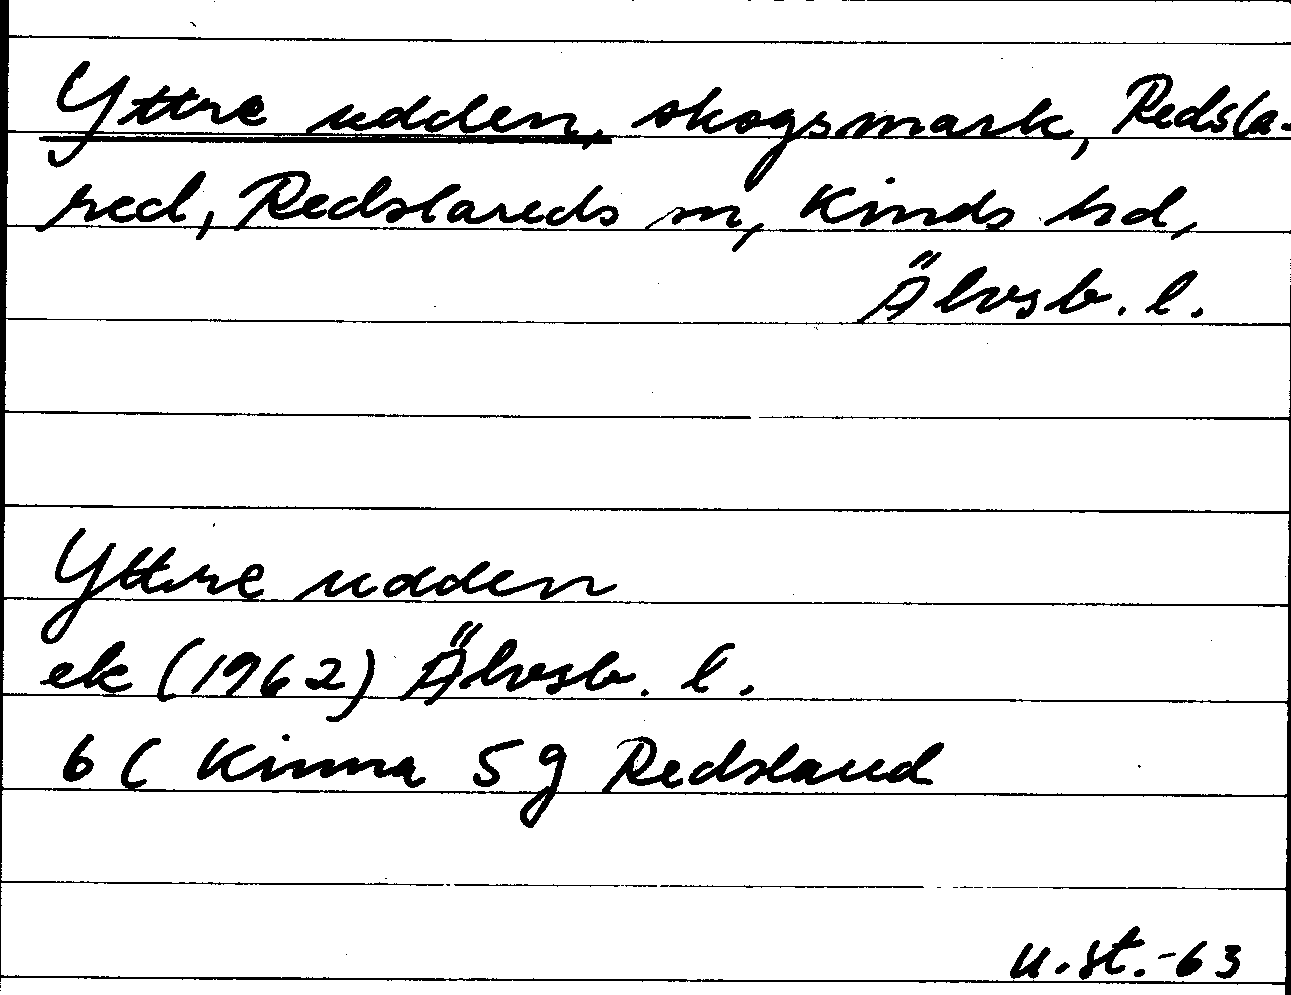 Yttre udden, skogsmark, Redsla-
red, Redslareds sn, Kinds hd,
Älvsb. l.
Yttre udden
ek (1962) Älvsb. l.
6 C Kinna 5 g Redslared
u.st.-63